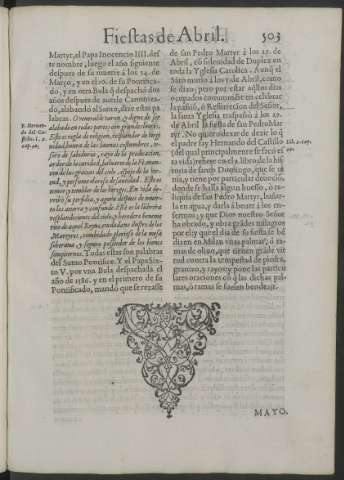 Fiestas de Abril.
503
Martyr, el Papa Inocencio IIII. des
te nombre, luego el año siguiente
despues de su muerte à los 24. de
Março, y en el 10. de su Pontifica-
do, y en otra Bula q̃ despachò dos
años despues de auerle Canoniza-
do, alabando al Santo, dize estas pa
labras. O venerable varon, y digno de ser
alabado en todas partes con grandes loores.
Este es regla de religion, resplandor de
dad, suma de las buenas costumbres,
soro de sabiduria, rayo de la predicacion,
ardor de la caridad,
de las gracias del cielo, espejo de la ver-
dad, y perfume oloroso de santidad. Este es
temor y temblor de los hereges. En vida
vertio su perfidia, y agora despues de muer-
to los aterra y confunde. Este es la
resplandeciente del cielo, y heredero benemé
rito de aquel Reyno, ciudadano ilustre de los
Martyres, combidado glorioso de la mesa
soberana, y seguro posseedor de los bienes
sempiternos. Todas estas son palabras
del Sumo Pontifice. Y el Papa Six-
to V. por vna Bula despachada el
año de 1586. y en el primero de su
Pontificado, mandò que se rezasse
F. Hernan-
do del Ca-
stillo l. 2.
cap.
de san Pedro Martyr à los 29. de
Abril, cõ solenidad de Duplex en
toda la Yglesia Catolica. Aunq̃ el
Santo murio à los 5 de Abril, como
se dixo; pero por estar aq̃llos dias
ocupados comunmente en celebrar
la passiõ, ò Resurreccion del Señor,
la santa Yglesia traspassò à los 29.
de Abril la fiesta de san Pedro Mar-
tyr. No quiero dexar de dezir lo q̃
el padre fray Hernando del Castillo
(del qual principalmente se sacò es
ta vida) refiere en el 1. libro de la his
toria de santo Domingo, que se vsa
mucho, y tiene por particular deuociõ,
donde se halla algun huesso, ò re-
liquia de san Pedro Martyr, bañar-
la en agua, y darla à beuer à los en-
fermos; y que Dios nuestro Señor
ha obrado, y obra grãdes milagros
por ella: y que el dia de su fiesta se bẽ
dizen en Milan vnas palmas, ò ra-
mos de oliuo, que tienen grãde vir
tud contra la tempestad de piedra,
granizo, y rayos; y pone las particu
lares oraciones cõ q̃ las dichas pal-
mas, ò ramas se suelen bendezir.
Lib. 2. cap.
MAYO.